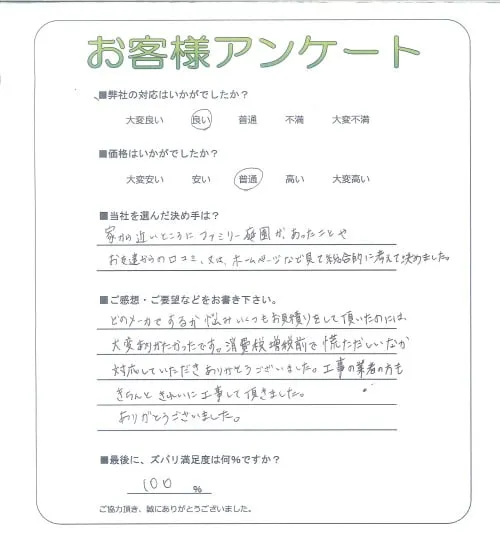 お客様アンケート
■弊社の対応はいかがでしたか？
大変良い 良い 普通 不満 大変不満
■価格はいかがでしたか？
大変安い 安い 普通 高い 大変高い
■当社を選んだ決め手は？
家から近いところにファミリー庭園があったことや
お友達からの口コミ、又は、ホームページなど見て総合的に考えて決めました。
■ご感想・ご要望などをお書き下さい。
どのメーカーでするか悩みいくつもお見積りをして頂いたのには、
大変ありがたかったです。消費税増税前で慌ただしいなか
対応していただきありがとうございました。工事の業者の方も
きちんときれいに工事して頂きました。
ありがとうございました。
■最後に、ズバリ満足度は何%ですか？
100 %
ご協力頂き、誠にありがとうございました。